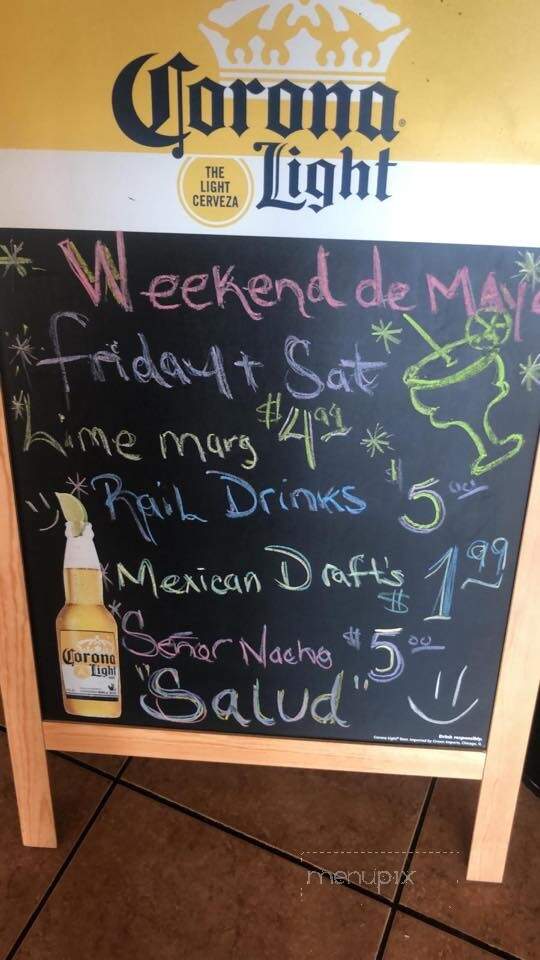 Corona
Light
THE
LIGHT
CERVEZA
Weekend de Mayo
Friday + Sat
Lime marg $4.99
Rail Drinks $5.00
Mexican Draft's $1.99
Señor Nacho $5.00
"Salud"
Corona
Light
Drink responsibly.
Corona Light® Beer. Imported by Crown Imports, Chicago, IL
menupix